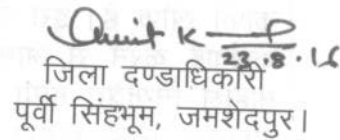 Amit K
23.8.16
जिला दण्डाधिकारी
पूर्वी सिंहभूम, जमशेदपुर।